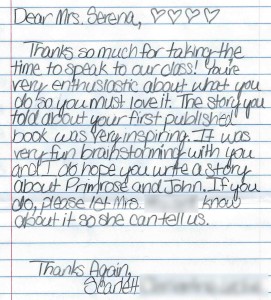 Dear Mrs. Serena, ♡♡♡♡
Thanks so much for taking the
time to speak to our class! You're
very enthusiastic about what you
do so you must love it. The story you
told about your first published
book was very inspiring. It was
very fun brainstorming with you
and I do hope you write a story
about Primrose and John. If you
do, please let Mrs. know
about it so she can tell us.
Thanks Again,
Scarlett